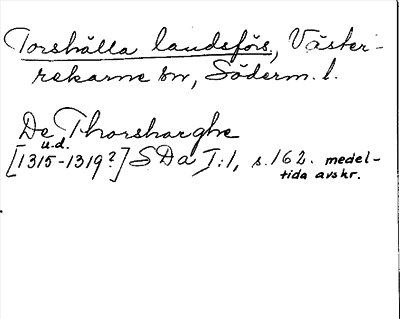 Torshälla landsförs., Väster-
rekarne sn, Söderm. l.
De Thorsharghe
u.d.
[1315-1319?] SDa I:1, s. 162. medel-
tida avskr.